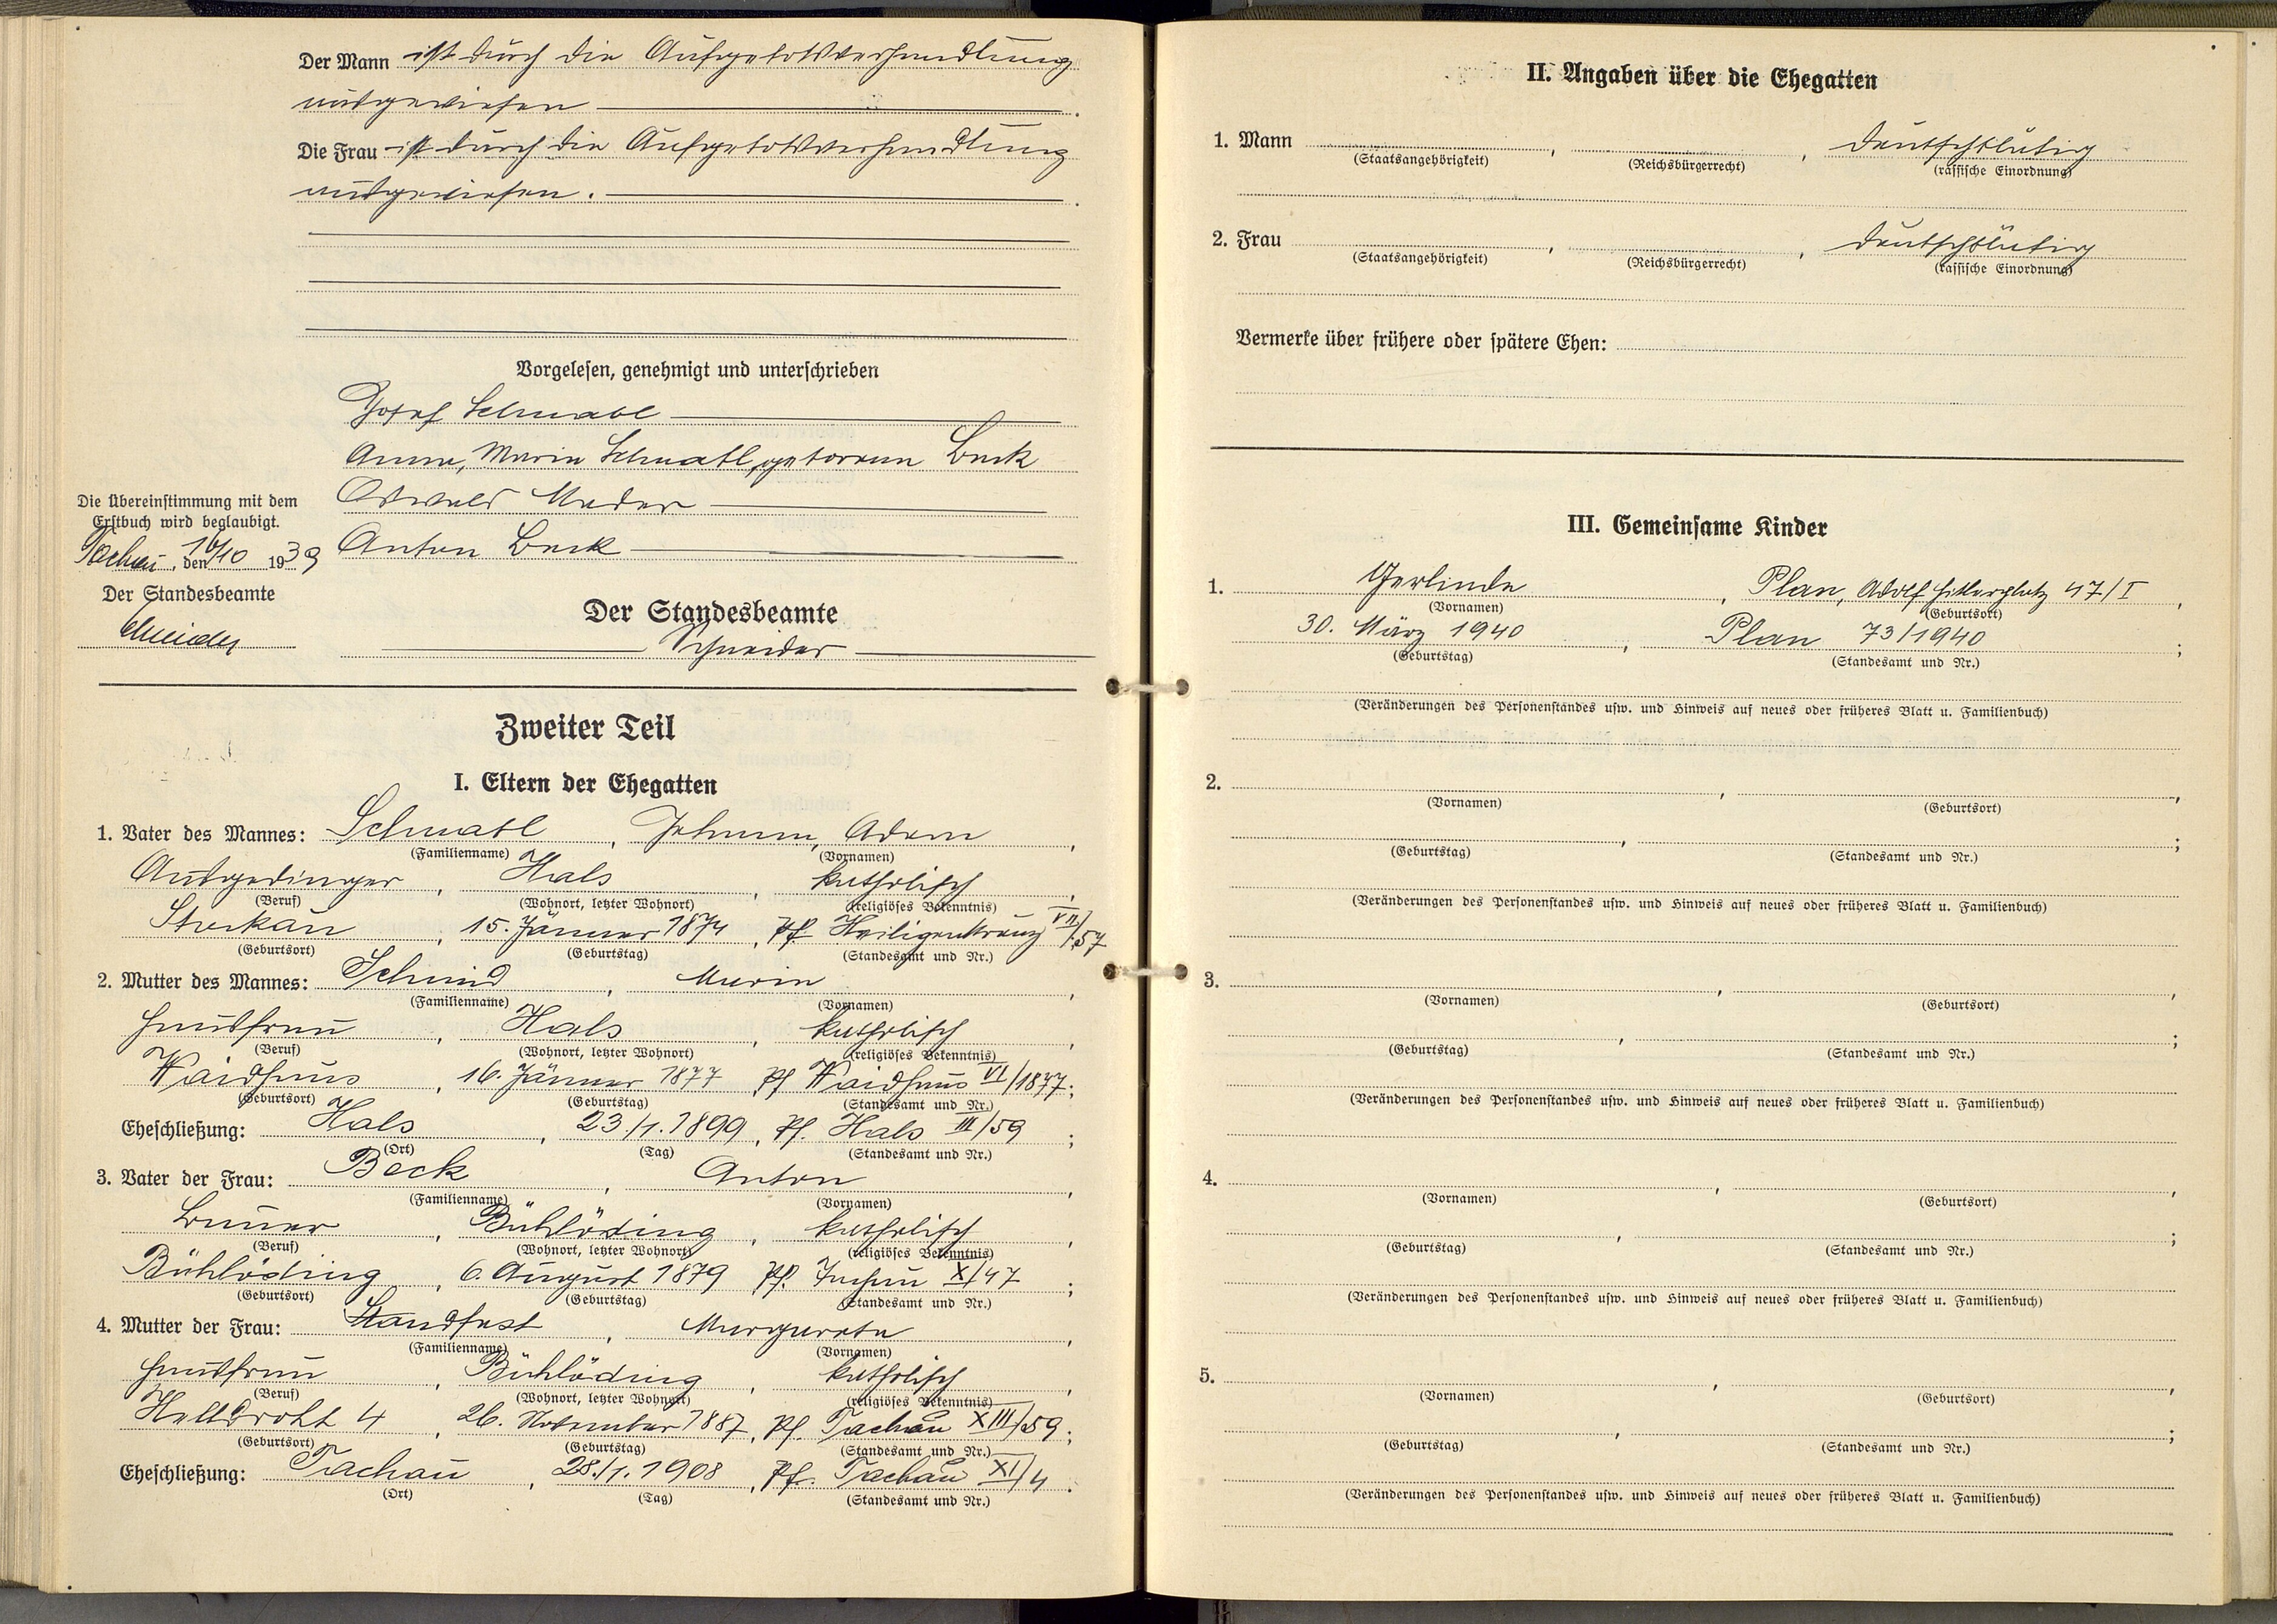 Der Mann ist durch die Aufgebotsverhandlung
ausgewiesen
Die Frau ist durch die Aufgebotsverhandlung
ausgewiesen.
Vorgelesen, genehmigt und unterschrieben
Josef Schmabl
Anna, Maria Schmatl, geborene Beck
Oswald Mader
Anton Beck
Die Übereinstimmung mit dem
Erstbuch wird beglaubigt.
Tachau, den 16/10 1939
Der Standesbeamte
Schneider
Der Standesbeamte
Schneider
Zweiter Teil
I. Eltern der Ehegatten
1. Vater des Mannes: Schmatl, Johann, Adam,
(Familienname) (Vornamen)
Ausgedinger, Hals, katholisch,
(Beruf) (Wohnort, letzter Wohnort) (religiöses Bekenntnis)
15. Jänner 1874, Pf. Heiligenkreuz VII/57
(Geburtsort) (Geburtstag) (Standesamt und Nr.)
2. Mutter des Mannes: Schmid, Maria,
(Familienname) (Vornamen)
Hausfrau, Hals, katholisch,
(Beruf) (Wohnort, letzter Wohnort) (religiöses Bekenntnis)
Waidhaus, 16. Jänner 1877, Pf Waidhaus VI/1877;
(Geburtsort) (Geburtstag) (Standesamt und Nr.)
Eheschließung: Hals, 23./1. 1899, Pf. Hals III/59;
(Ort) (Tag) (Standesamt und Nr.)
3. Vater der Frau: Beck, Anton,
(Familienname) (Vornamen)
Bauer, Bühlöding, katholisch,
(Beruf) (Wohnort, letzter Wohnort) (religiöses Bekenntnis)
Bühlöding, 6. August 1879 Pf. X/47;
(Geburtsort) (Geburtstag) (Standesamt und Nr.)
4. Mutter der Frau: Standfest, Margareta,
(Familienname) (Vornamen)
Hausfrau, Bühlöding, katholisch,
(Beruf) (Wohnort, letzter Wohnort) (religiöses Bekenntnis)
4, 26. November 1887, Pf. Tachau XIII/59;
(Geburtsort) (Geburtstag) (Standesamt und Nr.)
Eheschließung: Tachau, 28./1. 1908, Pf. Tachau XI/4.
(Ort) (Tag) (Standesamt und Nr.)
II. Angaben über die Ehegatten
1. Mann , , deutschblütig
(Staatsangehörigkeit) (Reichsbürgerrecht) (rassische Einordnung)
2. Frau , , deutschblütig
(Staatsangehörigkeit) (Reichsbürgerrecht) (rassische Einordnung)
Vermerke über frühere oder spätere Ehen:
III. Gemeinsame Kinder
1. Gerlinde, Plan, Adolf Hitlerplatz 47/I,
(Vornamen) (Geburtsort)
30. März 1940, Plan 73/1940;
(Geburtstag) (Standesamt und Nr.)
(Veränderungen des Personenstandes usw. und Hinweis auf neues oder früheres Blatt u. Familienbuch)
2. , ,
(Vornamen) (Geburtsort)
, ;
(Geburtstag) (Standesamt und Nr.)
(Veränderungen des Personenstandes usw. und Hinweis auf neues oder früheres Blatt u. Familienbuch)
3. , ,
(Vornamen) (Geburtsort)
, ;
(Geburtstag) (Standesamt und Nr.)
(Veränderungen des Personenstandes usw. und Hinweis auf neues oder früheres Blatt u. Familienbuch)
4. , ,
(Vornamen) (Geburtsort)
, ;
(Geburtstag) (Standesamt und Nr.)
(Veränderungen des Personenstandes usw. und Hinweis auf neues oder früheres Blatt u. Familienbuch)
5. , ,
(Vornamen) (Geburtsort)
, ;
(Geburtstag) (Standesamt und Nr.)
(Veränderungen des Personenstandes usw. und Hinweis auf neues oder früheres Blatt u. Familienbuch)